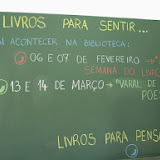 LIVROS PARA SENTIR...
ACONTECER NA BIBLIOTECA:
06 E 07 DE FEVEREIRO →
SEMANA DO LIVRO
13 E 14 DE MARÇO → "VARAL DE
POES
LIVROS PARA PENS